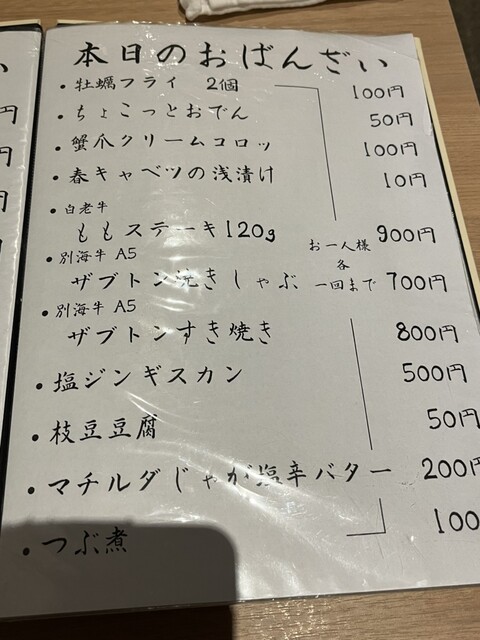 本日のおばんざい
・牡蠣フライ 2個 100円
・ちょこっとおでん 50円
・蟹爪クリームコロッ 100円
・春キャベツの浅漬け 10円
・白老牛
ももステーキ120g 900円
お一人様
各
一回まで
・別海牛 A5
ザブトン焼きしゃぶ 700円
・別海牛 A5
ザブトンすき焼き 800円
・塩ジンギスカン 500円
・枝豆豆腐 50円
・マチルダじゃが塩辛バター 200円
・つぶ煮 100
い
円
円
円